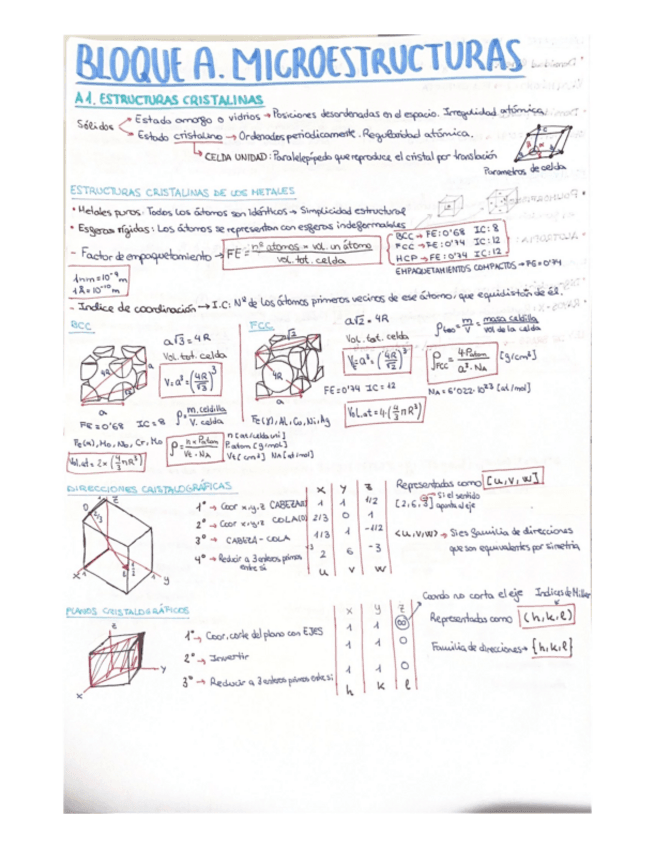 BLOQUE A. MICROESTRUCTURAS
A1. ESTRUCTURAS CRISTALINAS
Sólidos
→ Estado amorfo o vidrios → Posiciones desordenadas en el espacio. Irregularidad atómica.
→ Estado cristalino → Ordenados periodicamente. Regularidad atómica.
↳ CELDA UNIDAD: Paralelepípedo que reproduce el cristal por translación
Parametros de celda
ESTRUCTURAS CRISTALINAS DE LOS METALES
• Metales puros: Todos los átomos son idénticos → Simplicidad estructural
• Esferas rígidas: Los átomos se representan con esferas indeformables
- Factor de empaquetamiento → FE = nº atomos × vol. un átomo / vol. tot. celda
BCC → FE: 0'68 IC: 8
FCC → FE: 0'74 IC: 12
HCP → FE: 0'74 IC: 12
EMPAQUETAMIENTOS COMPACTOS → FE = 0'74
1nm = 10⁻⁹ m
1Å = 10⁻¹⁰ m
- Indice de coordinación → I.C: Nº de los átomos primeros vecinos de ese átomo, que equidistan de él.
BCC
a√3 = 4R
Vol. tot. celda
V = a³ = (4R/√3)³
4R
a
a
FE = 0'68 IC = 8
ρ = m. celdilla / V. celda
Fe(α), Mo, Nb, Cr, Mo
ρ = n × Patom / Vt · NA
n [at/celda uni]
Patom [g/mol]
Vt [cm³] NA [at/mol]
Vol. at = 2 × (4/3 πR³)
FCC
√2
4R
a
a√2 = 4R
Vol. tot. celda
Vc = a³ = (4R/√2)³
FE = 0'74 IC = 12
Fe(γ), Al, Cu, Ni, Ag
Vol. at = 4 · (4/3 πR³)
ρteo = m/V = masa celdilla / vol de la celda
ρFCC = 4 · Patom / a³ · NA [g/cm³]
NA = 6'022 · 10²³ [at/mol]
DIRECCIONES CRISTALOGRÁFICAS
X Y Z
1º → Coor x,y,z CABEZA 1 1 1/2
2º → Coor x,y,z COLA(O) 2/3 0 1
3º → CABEZA - COLA 1/3 1 -1/2
4º → Reducir a 3 enteros primos entre sí 2 6 -3
u v w
Representadas como [u, v, w]
[2, 6, 3̄] → Si el sentido apunta al eje
<u,v,w> → Si es familia de direcciones
que son equivalentes por simetría
PLANOS CRISTALOGRÁFICOS
z
y
x
X Y Z
1º → Coor. corte del plano con EJES 1 1 ∞
2º → Invertir 1 1 0
3º → Reducir a 3 enteros primos entre sí 1 1 0
h k l
Cuando no corta el eje
Indices de Miller
Representadas como (h, k, l)
Familia de direcciones → {h, k, l}